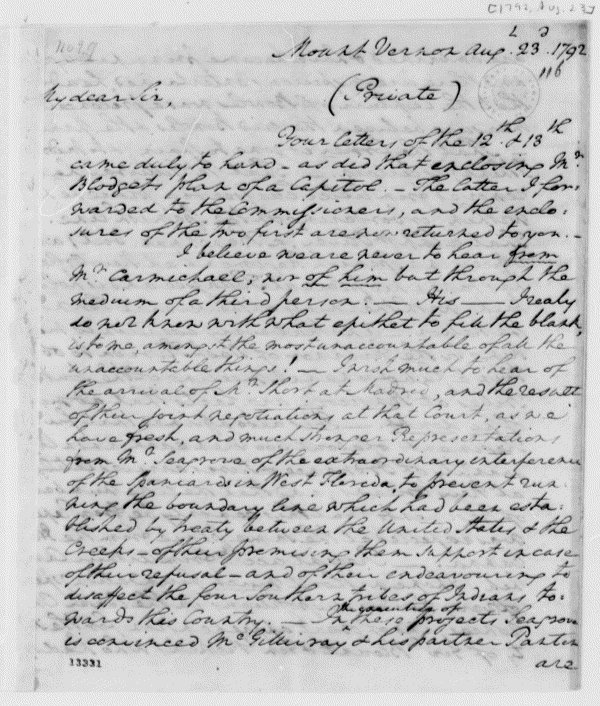 [1792, Aug. 23]
Mount Vernon Aug. 23.d 1792
116
My dear Sir, (Private)
Your letters of the 12th. & 13th
came duly to hand – as did that enclosing Mr.
Blodgets plan of a Capitol. – The latter I for:
warded to the Commissioners, and the enclo:
sures of the two first are now returned to you. –
I believe we are never to hear from
Mr. Carmichael; nor of him but through the
medium of a third person. – His —— I realy
do not know with what epithet to fill the blank,
is to me, amongst the most unaccountable of all the
unaccountable things! – I wish much to hear of
the arrival of Mr. Short at Madrid, and the result
of their joint negotiations at that Court, as we
have fresh, and much stronger Representations
from Mr. Seagrove of the extraordinary interference
of the Spaniards in West Florida, to prevent run:
ning the boundary line which had been esta:
blished by treaty between the United States & the
Creeks – of their promising them support in case
of their refusal – and of their endeavouring to
disaffect the four Southern tribes of Indians to:
wards this Country. – In the execution of these projects Seagrove
is convinced McGilliray & his partner Panton
are
13331